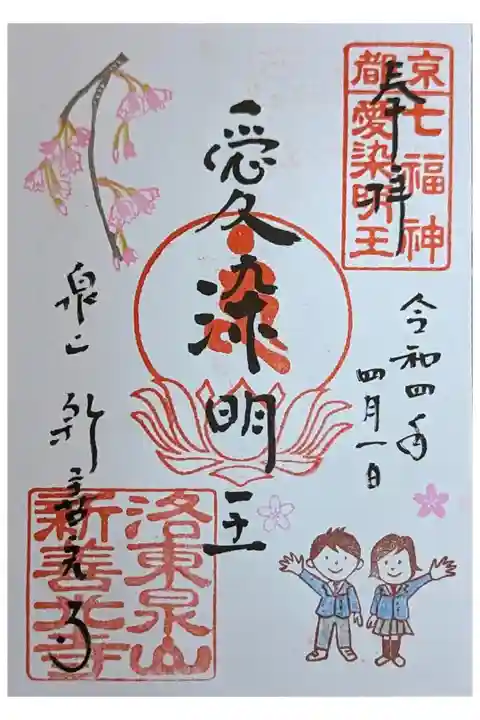 奉拝
京七福神
都愛染明王
令和四年
四月一日
愛染明王
泉山 新善光寺
洛東泉山
新善光寺